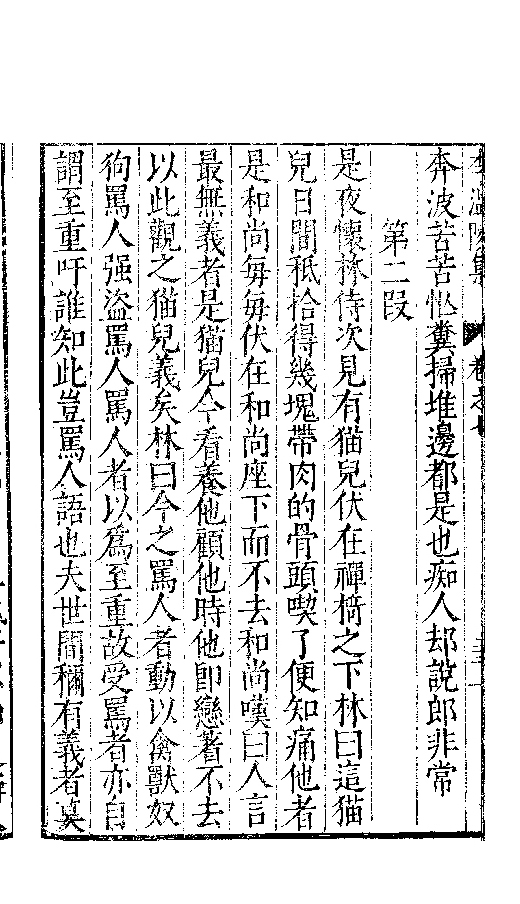 李溫陵集 卷之
奔波苦苦惱糞掃堆邊都是也痴人却說郎非常
第二段
是夜懷林侍次見有猫兒伏在禪椅之下林曰這猫
兒日間秪拾得幾塊帶肉的骨頭喫了便知痛他者
是和尚每每伏在和尚座下而不去和尚嘆曰人言
最無義者是猫兒今看養他顧他時他即戀着不去
以此觀之猫兒義矣林曰今之罵人者動以禽獸奴
狗罵人强盜罵人罵人者以爲至重故受罵者亦自
謂至重吁誰知此豈罵人語也夫世間稱有義者莫